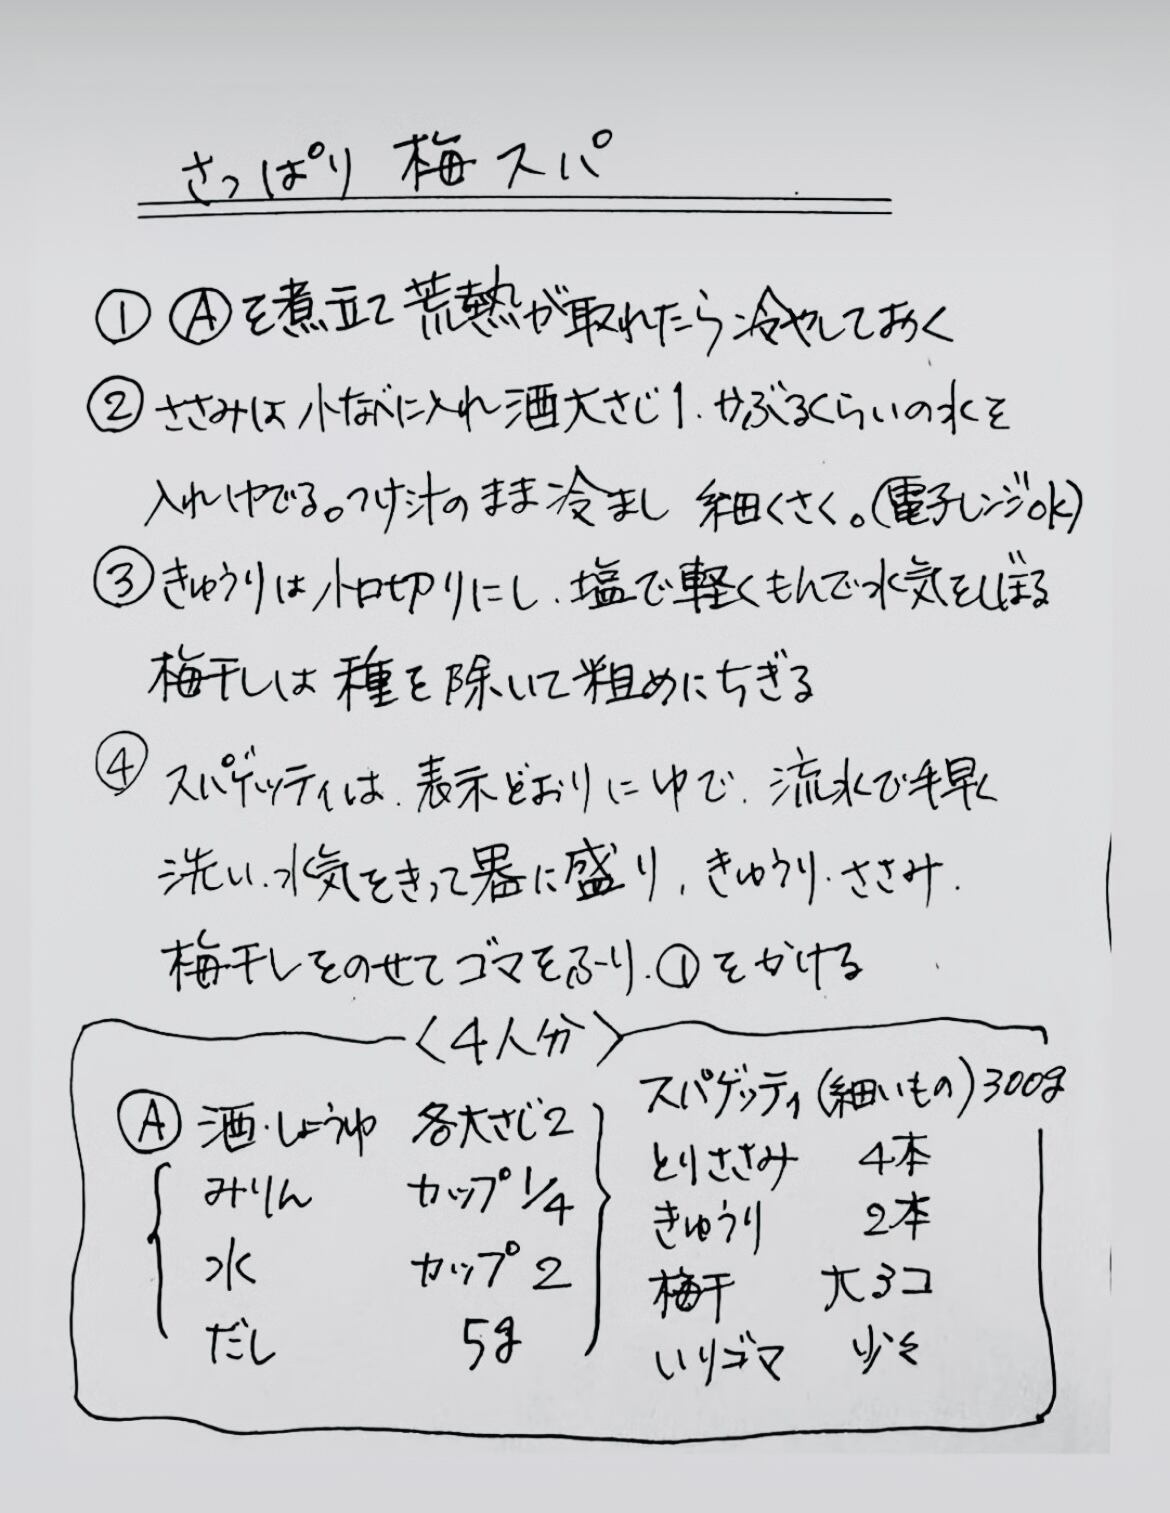 さっぱり 梅スパ
① Ⓐを煮立て荒熱が取れたら冷やしておく
② ささみは小なべに入れ酒大さじ1、かぶるくらいの水を
入れゆでる。つけ汁のまま冷まし 細くさく。(電子レンジok)
③ きゅうりは小口切りにし、塩で軽くもんで水気をしぼる
梅干しは種を除いて粗めにちぎる
④ スパゲッティは、表示どおりにゆで、流水で手早く
洗い、水気をきって器に盛り、きゅうり・ささみ、
梅干しをのせてゴマをふり、①をかける
〈4人分〉
Ⓐ 酒・しょうゆ 各大さじ2
みりん カップ1/4
水 カップ2
だし 5g
スパゲッティ(細いもの)300g
とりささみ 4本
きゅうり 2本
梅干 大3コ
いりゴマ 少々